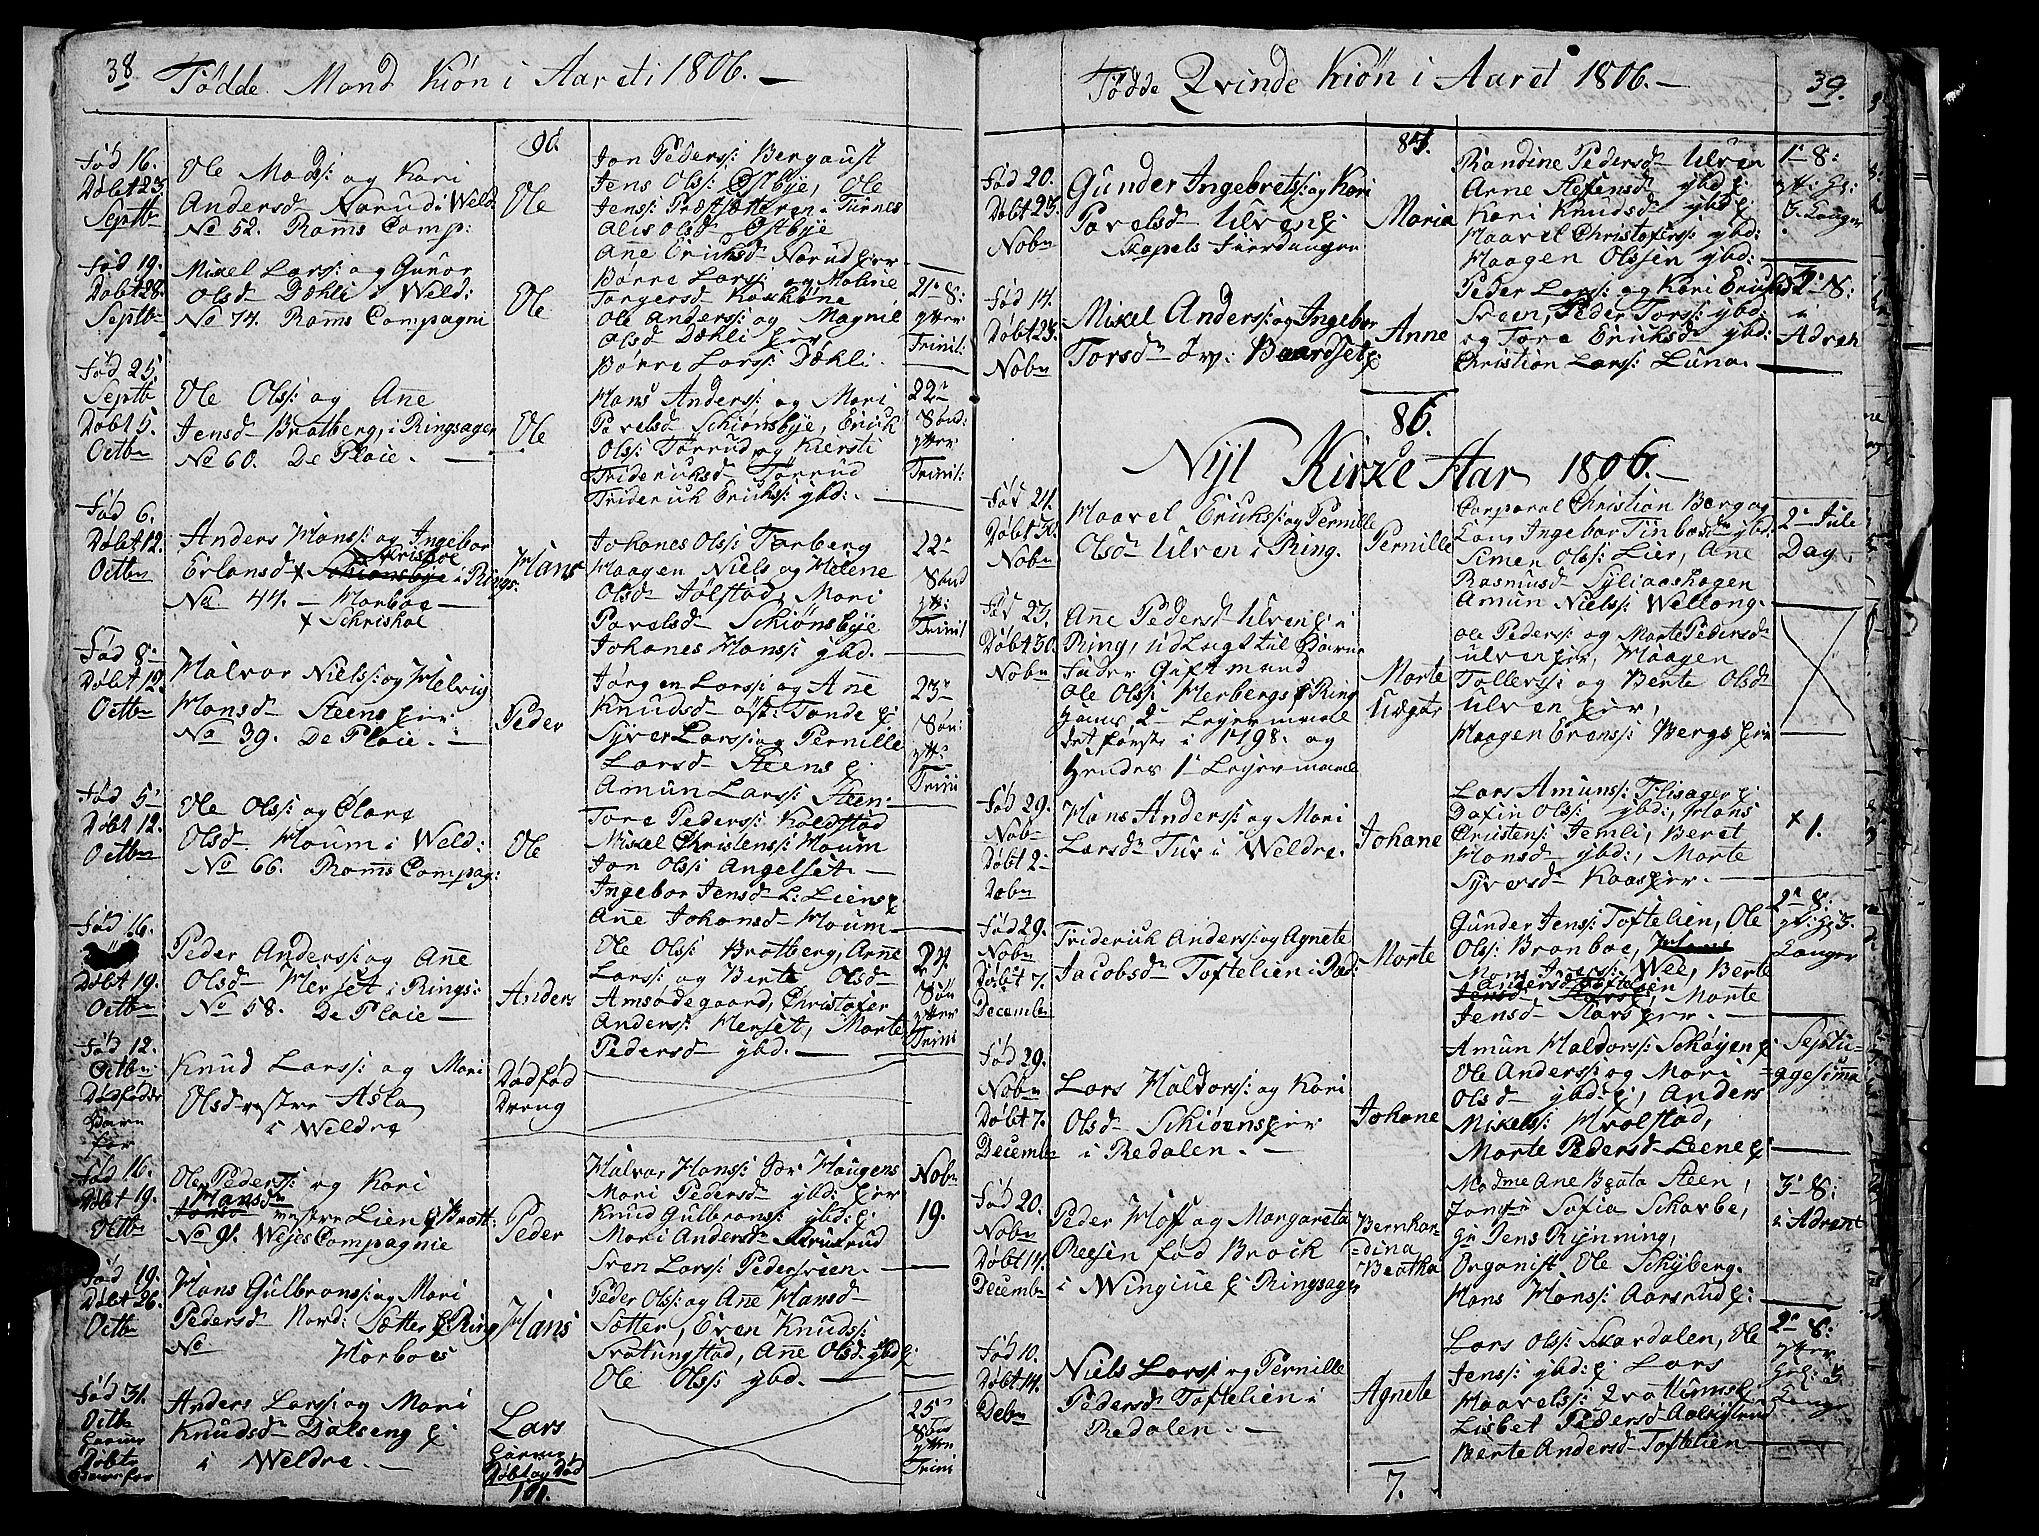 38.
Fødde Mand Kiøn i Aaret 1806. —
90.
Fød 16.
Døbt 23.
Septbr
Ole Mads: og Kari
Andersd Narud i Weld
No 52. Rams Comp:
Ole
Jon Peders: Bergaust
Jens Ols: Østbye, Ole
Jens: Præstsæteren i Turnes
Alis Olsd Østbye
Ane Ericksd Narud
Fød 19.
Døbt 28.
Septbr
Mikel Lars: og Gunor
Olsd Dæhli i Weld:
No 74. Rams Compagni
Ole
Børre Lars: og Maline
Torgersd Koxhøne
Ole Anders: og Magnil
Olsd Dæhli
Børre Lars: Dæhli.
21n 8:
ytter
Trinit:
Fød 25.
Septb
Døbt 5.
Octbr
Ole Ols: og Ane
Jensd Bratberg, i Ringsager
No 60. De Plaie. —
Ole
Hans Anders: og Mari
Pavelsd Schiønsbye, Erick
Ols: Tørrud og Kiersti
Fridericksd Tørrud
Friderich Ericks: ybd: —
22n
Sønd:
ytter
Trinit:
Fød 6.
Døbt 12.
Octbr
Anders Hans: og Ingebor
Schrishoe
Erlansd x Schiønsbye i Rings:
No 44. — Morboe —
x Schrishoe
Hans
Johanes Ols: Torberg
Haagen Niels og Helene
Olsd Jølstad, Mari
Pavelsd Schiønsbye
Johanes Hans: ybd. —
22n
Sønd
ytt:
Trinit
Fød 8
Døbt 12.
Octbr
Halvor Niels: og Helvig
Hansd Steens
No 39. De Plaie. —
Peder
Jørgen Lars: og Ane
Knudsd øst: Tande
Syver Lars: og Pernille
Larsd Steens
Amun Lars: Steen.
23n
Søn:
ytt:
Trini
Fød 5
Døbt 12.
Octbr
Ole Ols: og Clare
Olsd Houm i Weld:
No 66. Rams Compag:
Ole
Tore Peders: Kaldstad
Mikel Christens: Houm
Jon Ols: Angelset —
Ingebor Jensd L: Liens
Ane Johansd Houm —
Fød 16.
Døbt 19.
Octbr
Peder Anders: og Ane
Olsd Herset i Rings:
No 58. De Plaie —
Anders
Ole Ols: Bratberg, Arne
Lars: og Berte Olsd
Amsødegaard, Christofer
Anders: Herset, Marte
Pedersd ybd. —
24.
Søn
ytter
Trini
Fød 12.
Octbr
Dødføder
Barn
før
Knud Lars: og Mari
Olsd vestre Asla
i Weldre
Dødfød
Dreng
Fød 16.
Døbt 19.
Octbr
Ole Peders: og Kari
Hansd
vestre Lien i Brøtt:
No 91. Wejes Compagnie
Peder
Halvor Hans: Haugens
Mari Pedersd ybd:
Knud Gulbrans: ybd:
Mari Andersd Bruurud
Sven Lars: Pedersveen —
Nobr
19.
Fød 19.
Døbt 26.
Octbr
Hans Gulbrans: og Mari
Pedersd Nord: Sætter Ring
No Horboes
Hans
Peder Ols: og Ane Hansd
Sætter, Even Knuds:
Fratungstad, Ane Olsd ybd
Ole Ols: ybd. —
Fød 31.
Octb
hieme
Døbte
Anders Lars: og Mari
Knudsd Dalseng
i Weldre. —
Lars
hieme
Døbt og Død
101.
25n
Søn
ytter
Trini
39.
Fødde Qvinde Kiøn i Aaret 1806. —
84.
Fød 20.
Døbt 23.
Nobr
Gunder Ingebrets: og Kari
Pavelsd Ulven
Skapels Fierdingen
Maria
Randine Pedersd Ulven
Arne Stefensd ybd
Kari Knudsd ybd
Haavel Christofers: ybd:
Haagen Olssen ybd:
1n 8:
ytt: H:
3. Konger
Fød 14.
Døbt 23.
Nobr
Mikel Anders: og Ingebor
Torsd Baardset
Anne
Peder Lars: og Kari Ericksd
Sveen, Peder Tors: ybd:
og Tore Ericksd ybd:
Christian Lars: Luna. —
2n 8:
i
Advent
86.
Nyt Kirke Aar 1806. —
Fød 24.
Døbt 30.
Nobr
Haavel Ericks: og Pernille
Olsd Ulven i Ring.
Pernille
Corporal Christian Berg og
Kone Ingebor Tinboe ybd:
Simen Ols: Lier, Ane
Rasmusd Syliaashagen
Amun Niels: Wellong.
2n Jule
Dag.
Fød 23.
Døbt 30.
Nobr
Ane Pedersd Ulven i
Ring, udLagt til Barne
Fader Giftmand
Ole Ols: Herbergs Ring
hans 2n Lejermaal
det første i 1798. og
hendes 1n Lejermaal
Marte
Uægte
Ole Peders: og Marte Pedersd
Ulven, Haagen
Tollers: og Berte Olsd
Ulven
Haagen Evens: Bergs
Fød 29.
Nobr
Døbt 2
Debr
Hans Anders: og Mari
Larsd Tuv i Weldre.
Johane
Lars Amuns: Flisager
Dafin Ols: ybd:, Hans
Cristens: Jemli, Beret
Hansd ybd:, Marte
Syversd Kaas —
x 1.
Fød 29.
Nobr
Døbt 7.
Decembr
Friderich Anders: og Agnete
Jacobsd Toftelien i Red:
Marte
Gunder Jens: Toftelien, Ole
Ols: Branboe,
Hans Ivers: Wee, Berte
Andersd Toftelien
Marte
Jensd Stars —
2n 8:
yt: H: 3.
Konger
Fød 29.
Nobr
Døbt 7.
Decembr
Lars Haldors: og Kari
Olsd Schiøens
i Redalen. —
Johane
Amun Haldors: Schøyen
Ole Anders: og Mari
Olsd ybd:, Anders
Mikels: Hvalstad,
Marte Pedersd Leene
Septu=
=agesima
Fød 20.
Nobr
Døbt 14.
Decembr
Peder Hoff og Margareta
Reesen fød Brock
i Wingiue Ringsager
Bernhar=
=dina
Beatha
Madme Ane Beata Steen,
Jomfr Sofia Scharbe,
Hr Jens Rynning,
Organist Ole Schyberg.
Hans Hans: Aarsrud
3n 8:
i Advent
Fød 10.
Døbt 14.
Debr
Niels Lars: og Pernille
Pedersd Toftelien i
Redalen. —
Agnete
Lars Ols: Skardalen, Ole
Jens: ybd: Lars
Haavels:
Lisbet Pedersd
Berte Andersd Toftelien
2n 8:
ytter
Hel: 3
Konger
7.